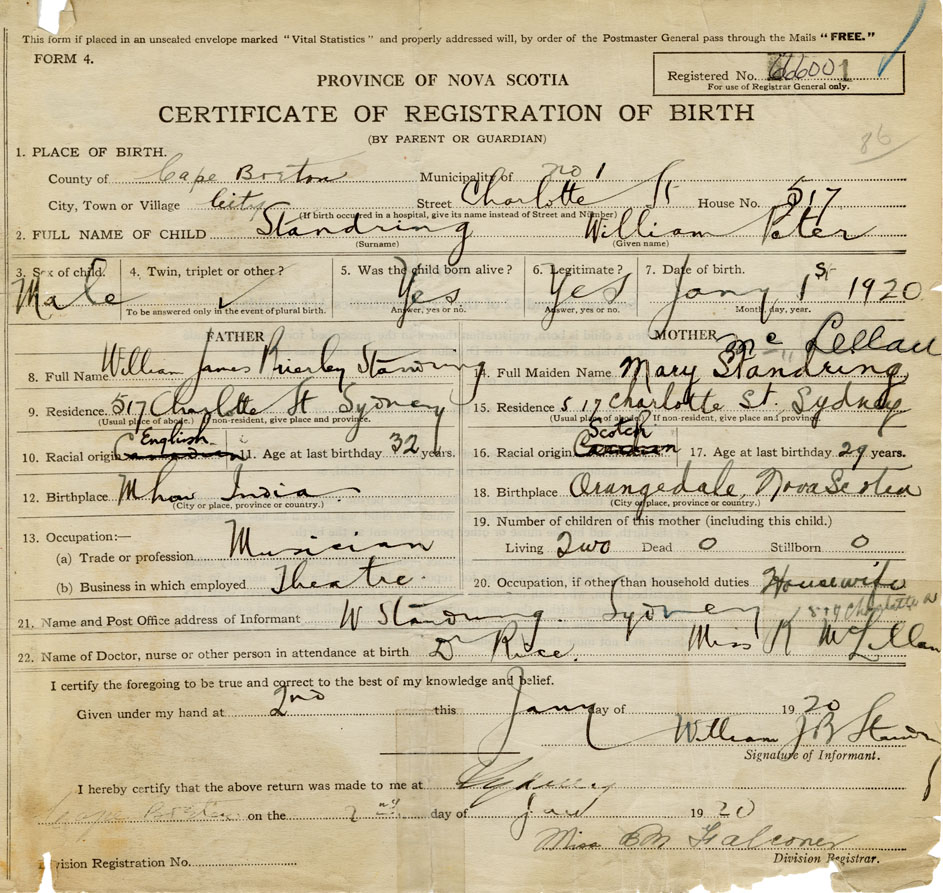 This form if placed in an unsealed envelope marked "Vital Statistics" and properly addressed will, by order of the Postmaster General pass through the Mails "FREE."
FORM 4.
Registered No. 66001
For use of Registrar General only.
PROVINCE OF NOVA SCOTIA
CERTIFICATE OF REGISTRATION OF BIRTH
(BY PARENT OR GUARDIAN)
86
1. PLACE OF BIRTH.
County of Cape Breton Municipality of no 1
City, Town or Village City Street Charlotte St House No. 517
(If birth occurred in a hospital, give its name instead of Street and Number)
2. FULL NAME OF CHILD Standring William Peter
(Surname) (Given name)
3. Sex of child. 4. Twin, triplet or other? 5. Was the child born alive? 6. Legitimate? 7. Date of birth.
Male ✓ Yes Yes Jany 1st 1920
To be answered only in the event of plural birth. Answer, yes or no. Answer, yes or no. Month, day, year.
FATHER MOTHER
Mc Lellan
8. Full Name William James Brierley Standring 14. Full Maiden Name Mary Standring
9. Residence 517 Charlotte St Sydney 15. Residence 517 Charlotte St. Sydney
(Usual place of abode.) If non-resident, give place and province. (Usual place of abode.) If non-resident, give place and province.
English Scotch
10. Racial origin Canadian 11. Age at last birthday 32 years. 16. Racial origin Canadian 17. Age at last birthday 29 years.
12. Birthplace Mhow India 18. Birthplace Orangedale, Nova Scotia
(City or place, province or country.) (City or place, province or country.)
13. Occupation:— 19. Number of children of this mother (including this child.)
(a) Trade or profession Musician Living Two Dead 0 Stillborn 0
(b) Business in which employed Theatre. 20. Occupation, if other than household duties Housewife
21. Name and Post Office address of Informant W Standring. Sydney 517 Charlotte St
22. Name of Doctor, nurse or other person in attendance at birth Dr Rice. Miss K McLellan
I certify the foregoing to be true and correct to the best of my knowledge and belief.
Given under my hand at 2nd this Jany day of 1920
William J B Standring
Signature of Informant.
I hereby certify that the above return was made to me at Sydney
Cape Breton on the 2nd day of Jan 1920
Miss BM Falconer
Division Registrar.
Division Registration No.